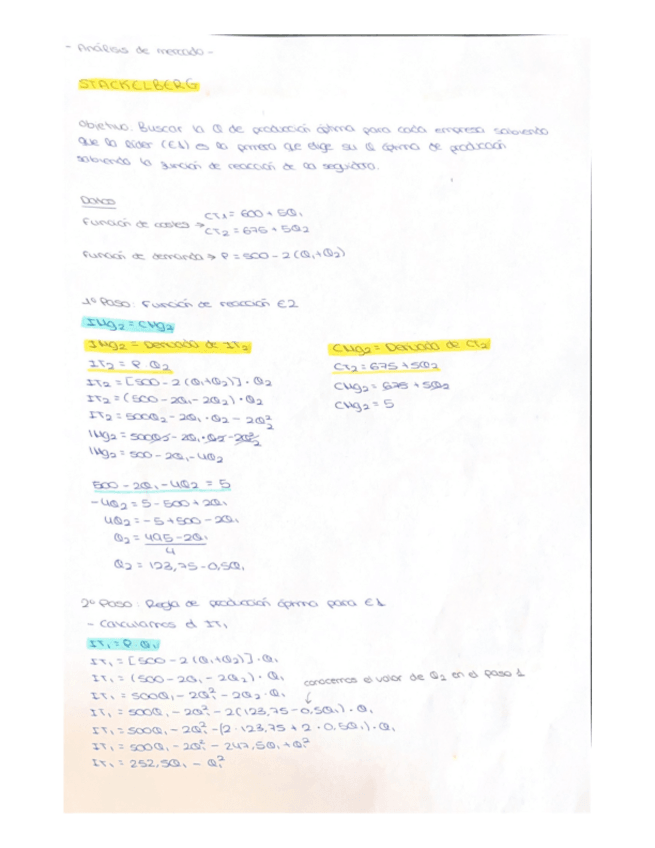 - Análisis de mercado -
STACKELBERG
Objetivo: Buscar la Q de producción óptima para cada empresa sabiendo
que la líder (E1) es la primera que elige su Q óptima de producción
sabiendo la función de reacción de la seguidora.
Datos
Función de costes → CT1 = 600 + 5Q1
CT2 = 675 + 5Q2
Función de demanda → P = 500 - 2(Q1+Q2)
1º Paso: Función de reacción E2
IMg2 = CMg2
IMg2 = Derivada de IT2
IT2 = P · Q2
IT2 = [500 - 2(Q1+Q2)] · Q2
IT2 = (500 - 2Q1 - 2Q2) · Q2
IT2 = 500Q2 - 2Q1 · Q2 - 2Q2²
IMg2 = 500Q2 - 2Q1 · Q2 - 2Q2²
IMg2 = 500 - 2Q1 - 4Q2
CMg2 = Derivada de CT2
CT2 = 675 + 5Q2
CMg2 = 675 + 5Q2
CMg2 = 5
500 - 2Q1 - 4Q2 = 5
-4Q2 = 5 - 500 + 2Q1
4Q2 = -5 + 500 - 2Q1
Q2 = 495 - 2Q1
4
Q2 = 123,75 - 0,5Q1
2º Paso: Regla de producción óptima para E1
- Calculamos el IT1
IT1 = P · Q1
IT1 = [500 - 2(Q1+Q2)] · Q1
IT1 = (500 - 2Q1 - 2Q2) · Q1
conocemos el valor de Q2 en el paso 1
IT1 = 500Q1 - 2Q1² - 2Q2 · Q1
IT1 = 500Q1 - 2Q1² - 2(123,75 - 0,5Q1) · Q1
IT1 = 500Q1 - 2Q1² - (2 · 123,75 + 2 · 0,5Q1) · Q1
IT1 = 500Q1 - 2Q1² - 247,5Q1 + Q1²
IT1 = 252,5Q1 - Q1²